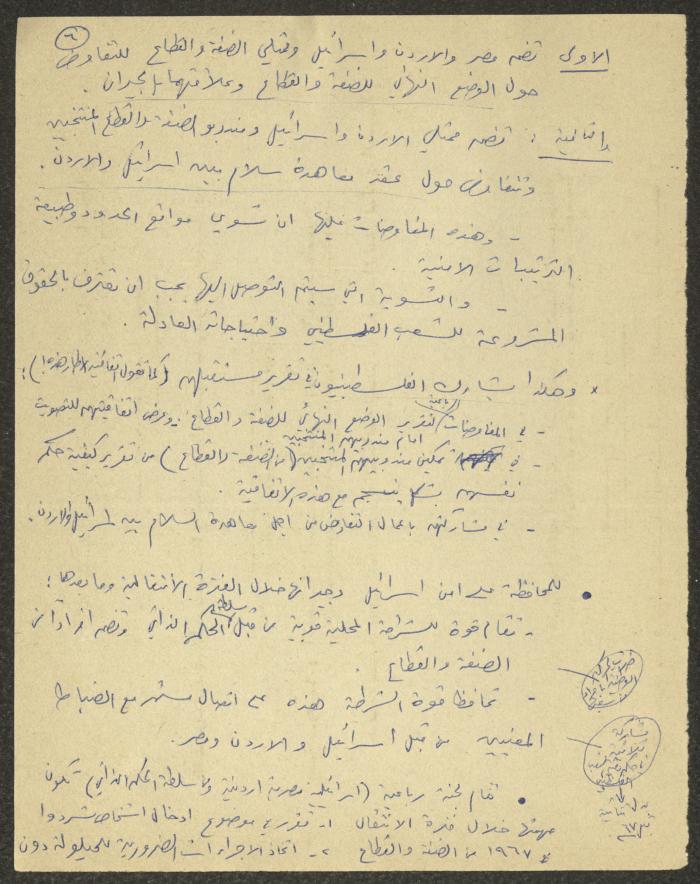 ٦
الاولى تضم مصر والاردن واسرائيل وممثلي الضفة والقطاع للتفاوض
حول الوضع النهائي للضفة والقطاع وعلاقتهما بالجيران .
الثانية : تضم ممثلي الاردن واسرائيل ومندوبو الضفة والقطاع المنتخبين
وتتفاوض حول عقد معاهدة سلام بين اسرائيل والاردن .
- وهذه المفاوضات عليها ان تسوي مواقع الحدود وطبيعة
الترتيبات الامنية .
- والتسوية التي سيتم التوصل اليها يجب ان تعترف بالحقوق
المشروعة للشعب الفلسطيني واحتياجاته العادلة .
* وهكذا يشارك الفلسطينيون في تقرير مستقبلهم (كما تقول اتفاقية الاطار هذه!) :
- في المفاوضات لتقرير الوضع النهائي للضفة والقطاع . وعرض اتفاقيتهم للتصويت
امام مندوبيهم المنتخبين
- في تمكين مندوبيهم المنتخبين (من الضفة والقطاع) من تقرير كيفية حكم
نفسهم بشكل ينسجم مع هذه الاتفاقية .
- في مشاركتهم باعمال التفاوض من اجل معاهدة السلام بين اسرائيل والاردن .
• للمحافظة على امن اسرائيل وجيرانها خلال الفترة الانتقالية وما بعدها :
- تقام قوة للشرطة المحلية قوية من قبل سلطة الحكم الذاتي وتضم افراداً من
الضفة والقطاع .
- تحافظ قوة الشرطة هذه على اتصال مستمر مع الضباط
المعنيين من قبل اسرائيل والاردن ومصر .
• تقام لجنة رباعية (اسرائيلية مصرية اردنية وسلطة الحكم الذاتي) تكون
مهمتها خلال فترة الانتقال ١- تقرير موضوع ادخال اشخاص تشردوا
١٩٦٧ من الضفة والقطاع ٢- اتخاذ الاجراءات الضرورية للحيلولة دون